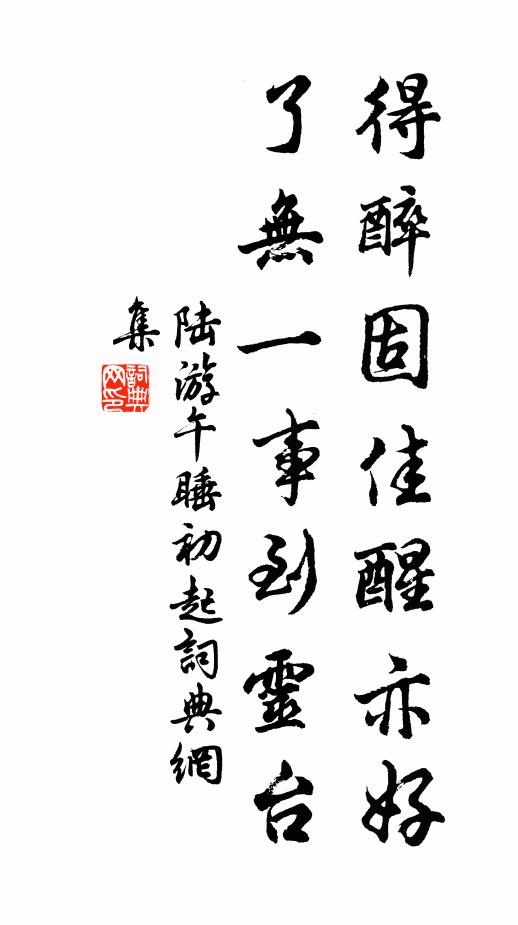 得醉固佳醒亦好
了無一事到靈台
陆游午睡初起詞典網
集
詞典网印